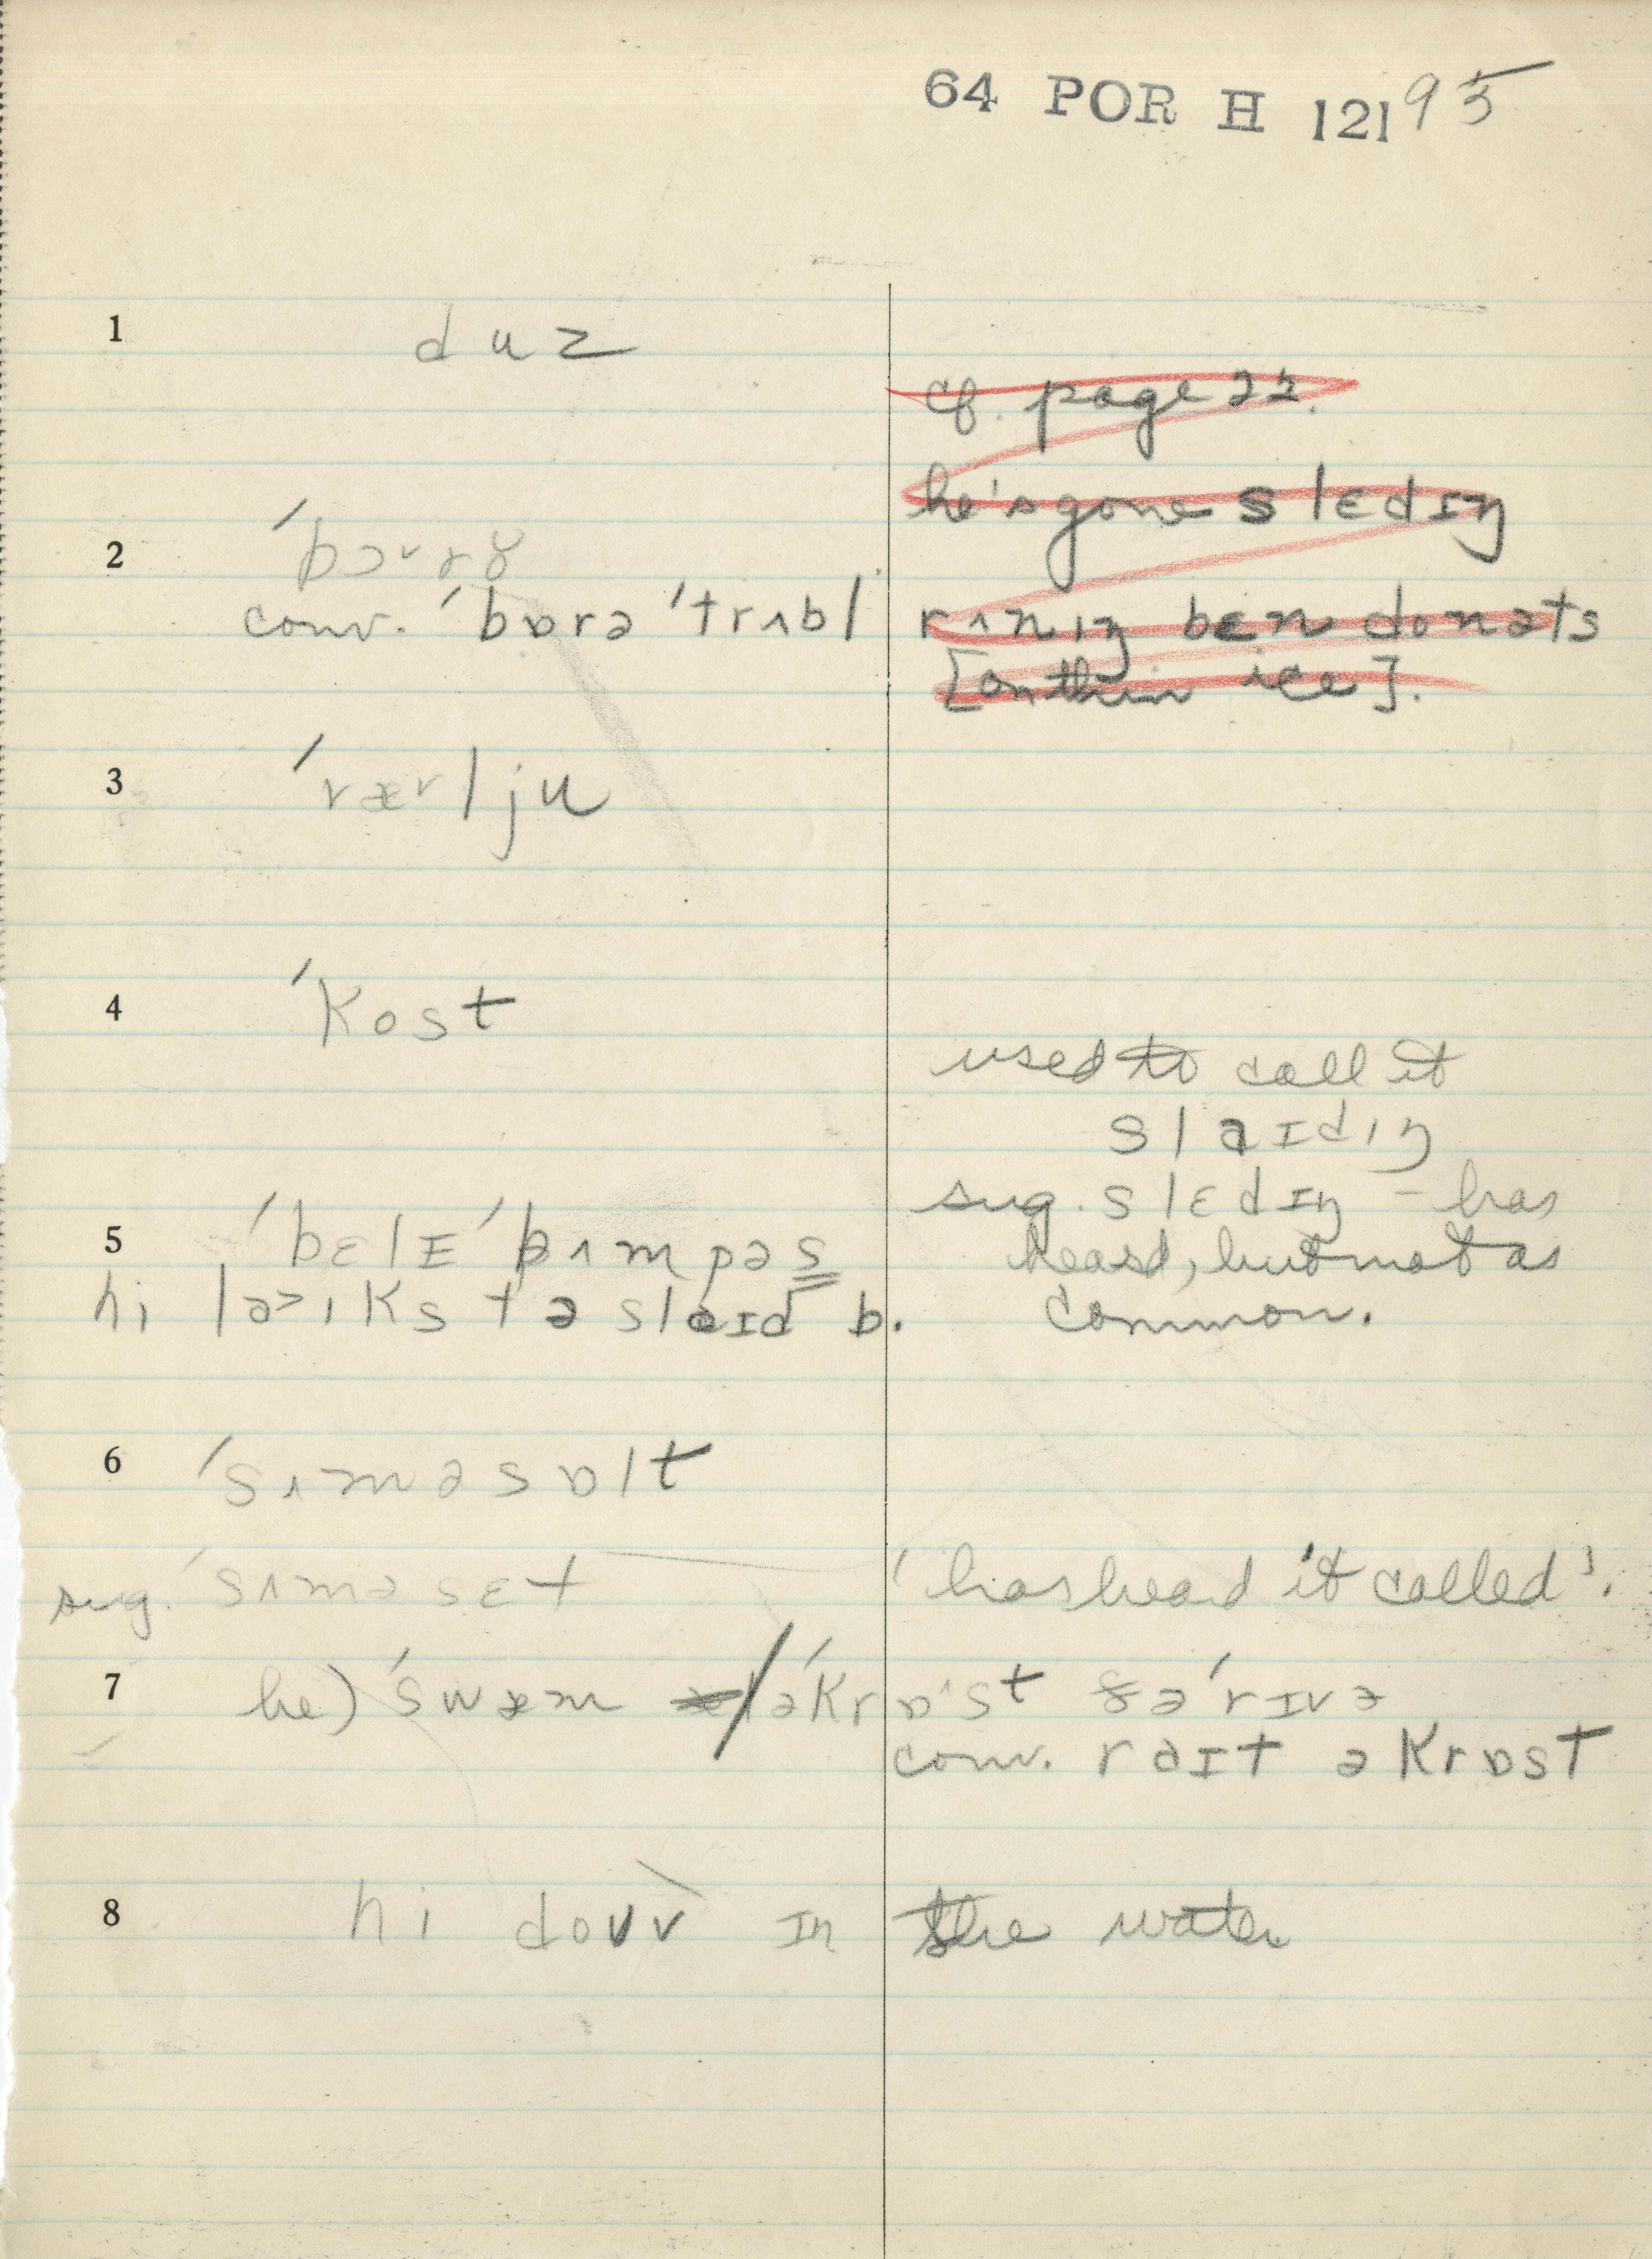 64 POR H 121 95
1 duz
cf. page 22.
he's gone slɛdɪŋ
2
conv. ˈbɒrə ˈtrʌbl
rʌnɪŋ bɛn donəts
[on thin ice].
3 ˈrærlju
4 ˈkost
used to call it
slaɪdɪŋ
sug. slɛdɪŋ – has
heard, but not as
common.
5 ˈbɛlɪ ˈbʌmpəs
hi laɪks tə slaɪd b.
6 ˈsʌməsɒlt
sug. ˈsʌməsɛt 'has heard it called'.
7 he) ˈswæm əˈkrɒst ðə ˈrɪvə
conv. raɪt əkrɒst
8 hi douv ɪn the water